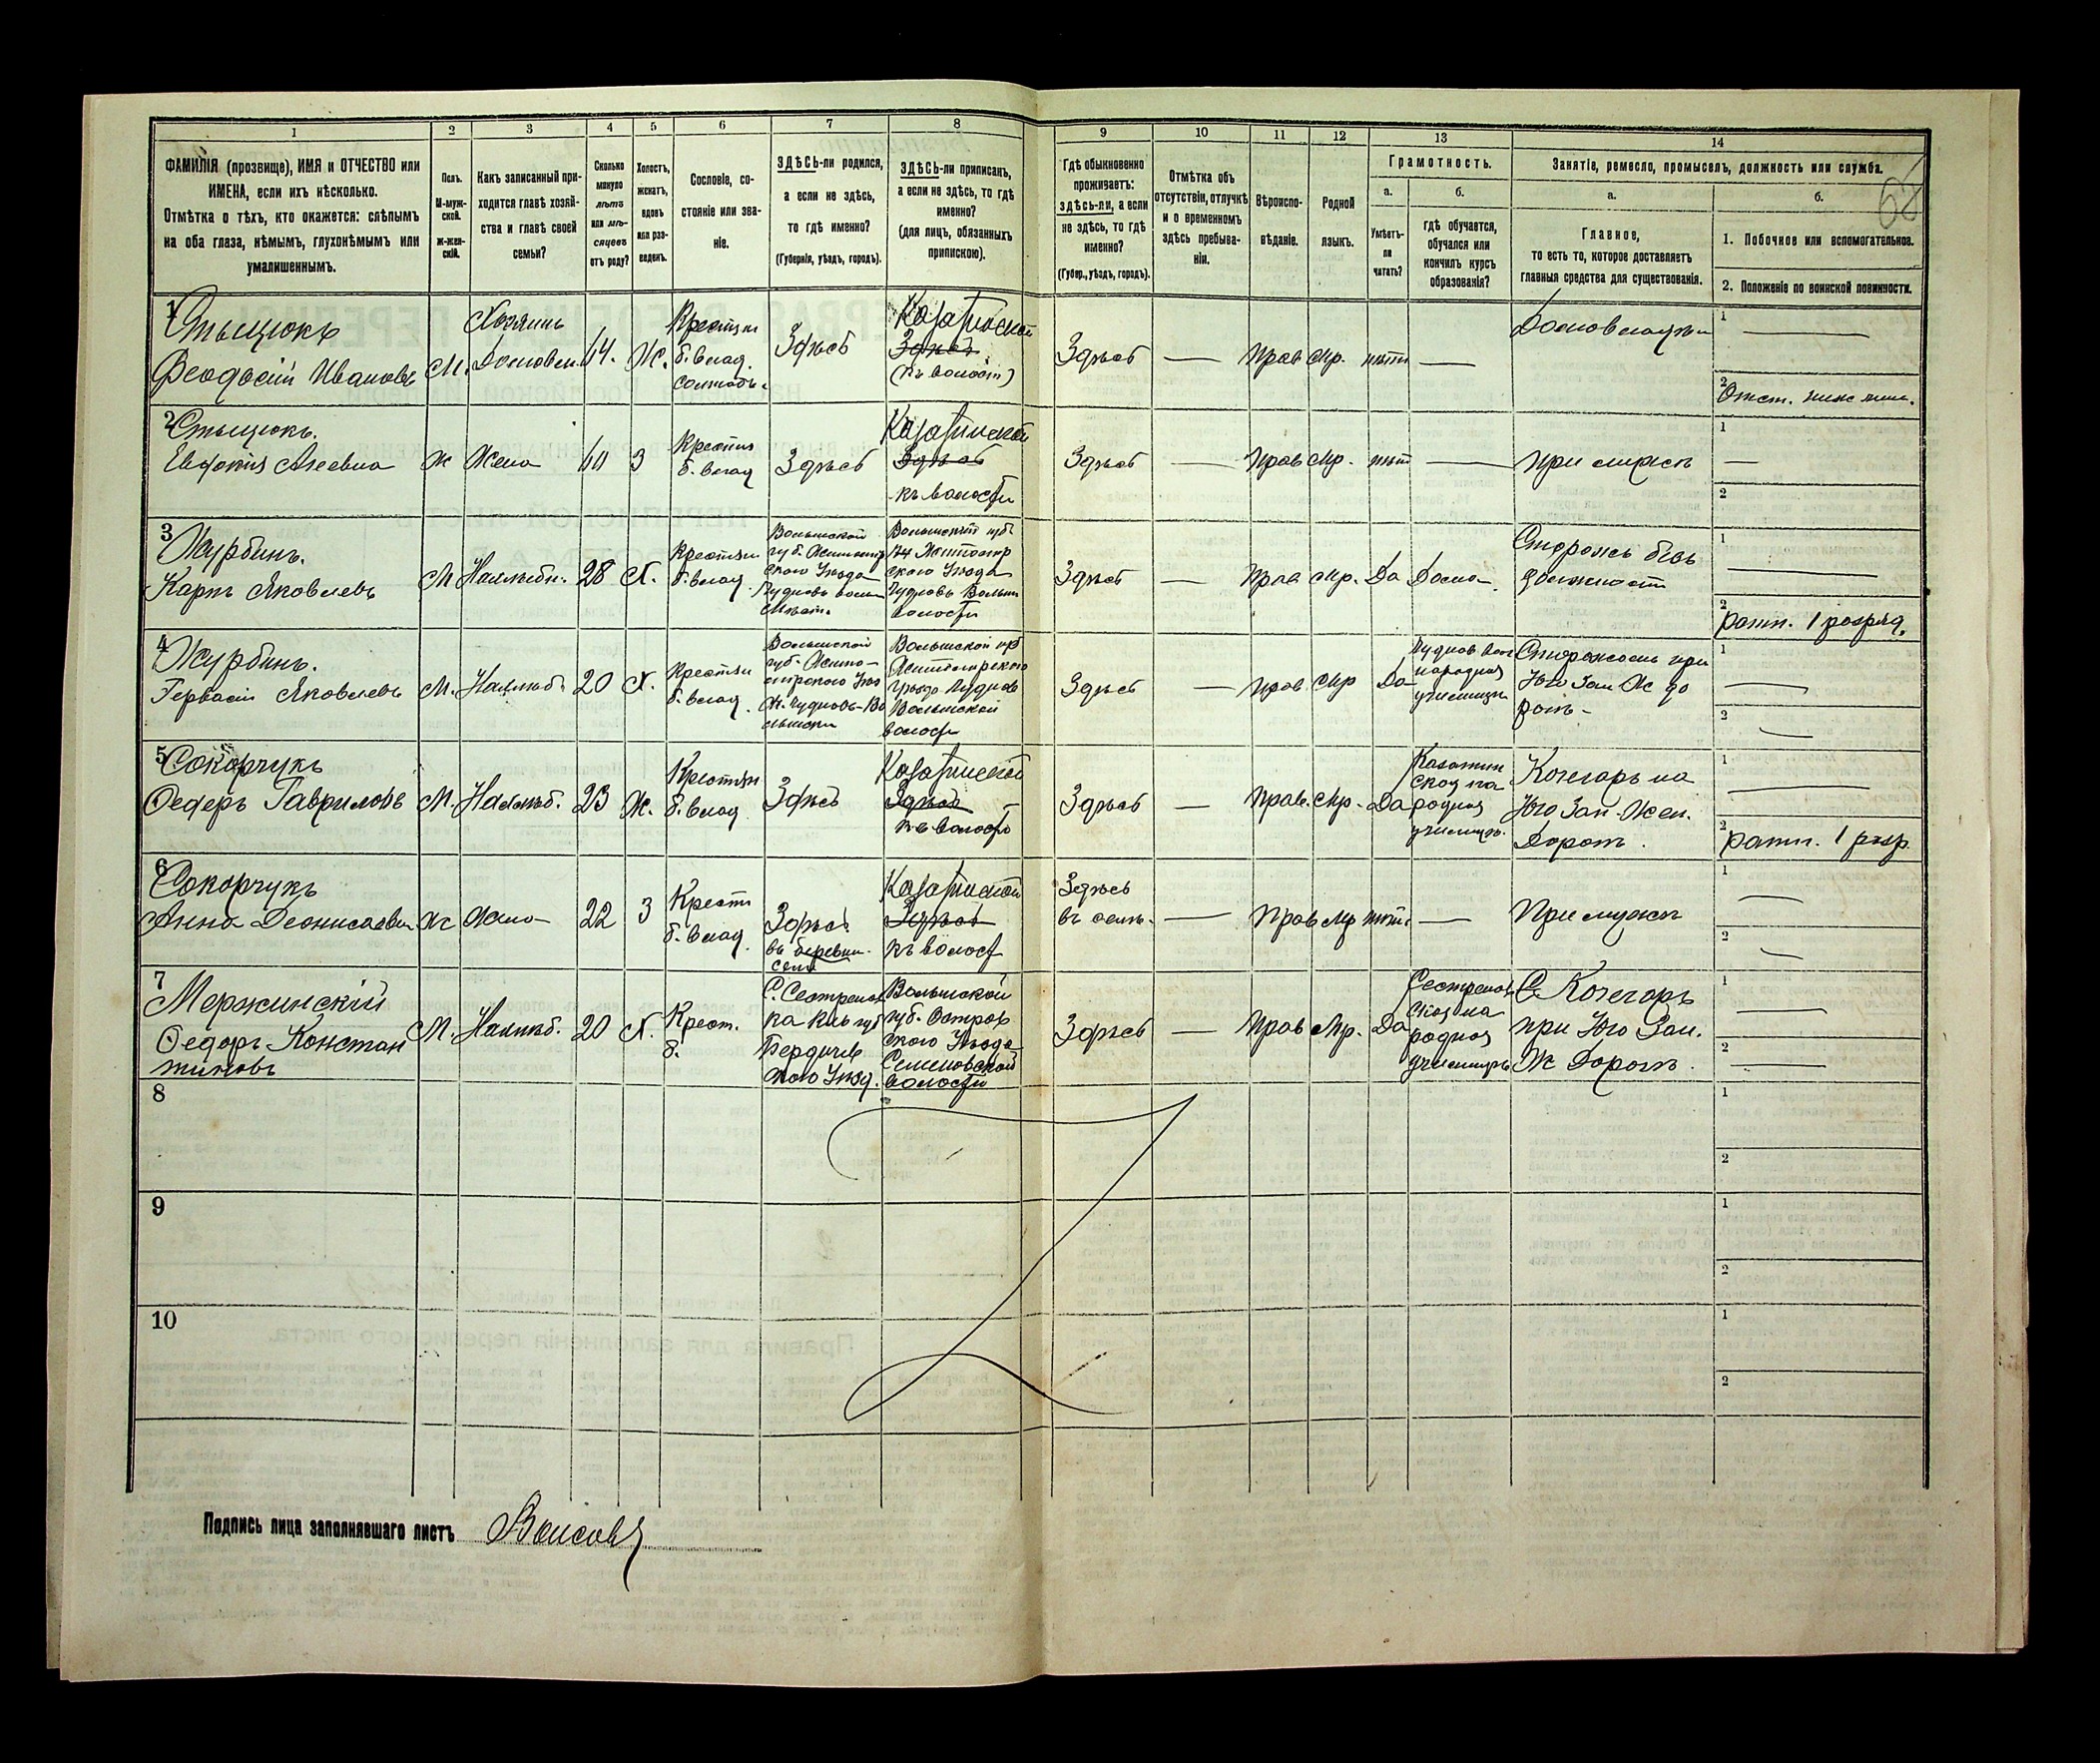 1 2 3 4 5 6 7 8 9 10 11 12 13 14
ФАМИЛІЯ (прозвище), ИМЯ и ОТЧЕСТВО или
ИМЕНА, если ихъ нѣсколько.
Отмѣтка о тѣхъ, кто окажется: слѣпымъ
на оба глаза, нѣмымъ, глухонѣмымъ или
умалишеннымъ.
Полъ.
М-муж-
ской.
Ж-жен-
скій.
Какъ записанный при-
ходится главѣ хозяй-
ства и главѣ своей
семьи?
Сколько
минуло
лѣтъ
или мѣ-
сяцевъ
отъ роду?
Холостъ,
женатъ,
вдовъ
или раз-
веденъ.
Сословіе, со-
стояніе или зва-
ніе.
ЗДѢСЬ-ли родился,
а если не здѣсь,
то гдѣ именно?
(Губернія, уѣздъ, городъ).
ЗДѢСЬ-ли приписанъ,
а если не здѣсь, то гдѣ
именно?
(для лицъ, обязанныхъ
припискою).
Гдѣ обыкновенно
проживаетъ:
здѣсь-ли, а если
не здѣсь, то гдѣ
именно?
(Губер., уѣздъ, городъ).
Отмѣтка объ
отсутствіи, отлучкѣ
и о временномъ
здѣсь пребыва-
ніи.
Вѣроиспо-
вѣданіе.
Родной
языкъ.
Грамотность.
а.
Умѣетъ-
ли
читать?
б.
гдѣ обучается,
обучался или
кончилъ курсъ
образованія?
Занятіе, ремесло, промыселъ, должность или служба.
а.
Главное,
то есть то, которое доставляетъ
главныя средства для существованія.
б.
1. Побочное или вспомогательное.
2. Положеніе по воинской повинности.
1
Феодосій Ивановъ
М.
Хозяинъ
64.
Ж.
Крестян
б. влад.
Здѣсь
Казатинской
Здѣсь
(къ волост)
Здѣсь
—
Прав
Мр.
нѣтъ
—
Домовладѣл
1 —
2
Отст.
2
Евфокія
Ж
Жена
60
З
б. влад
Здѣсь
Казатинской
Здѣсь
къ волости
Здѣсь
—
Прав
Мр.
нѣт
—
при мужѣ
1 —
2
3
Журбинъ.
Карпъ Яковлевъ
М
28
Х.
Крестян
б. влад.
Волынской
губ.
ского Уѣзда
Волынской губ
ского Уѣзда
Чудновъ Волын
волости
Здѣсь
—
Прав
Мр.
Да
Дома
Сторожъ безъ
должности
1 —
2
ратн. 1 разряд.
4
Журбинъ.
Гервасій Яковлевъ
М.
20
Х.
Крестян
б. влад.
Волынской
губ. Жито-
мирского Уѣз
Волынской губ
Житомирского
Уѣзда Чудново
Волынской
волост
Здѣсь
—
прав.
Мр
Да
народная
училище
Сторожемъ при
Юго Зап Ж до
рогѣ
1 —
2 —
5
Сокорчукъ
Федеръ Гавриловъ
М.
23
Ж.
Крестян
б. влад
Здѣсь
Казатинской
Здѣсь
къ волост
Здѣсь
—
Прав.
Мр.
Да
Казатин
ская на
родная
училищ.
Кочегаръ на
Юго Зап. Жел.
Дорогѣ.
1 —
2
ратн. 1 разр.
6
Сокорчукъ
Анна
Ж
Жена
22
З
Крестн
б. влад.
Здѣсь
въ деревни
селѣ
Казатинской
Здѣсь
къ волост
Здѣсь
въ селѣ.
—
Прав
Мр
нѣтъ
—
При мужѣ
1 —
2 —
7
Мержинскій
Федоръ Констан
тиновъ
М.
20
Х.
Крест.
б.
Бердичев
ского Уѣзд.
Волынской
губ. Острож
ского Уѣзда
Семеновской
волости
Здѣсь
—
Прав
Мр.
Да
ская на
родная
училищѣ
Кочегаръ
при Юго Зап.
Ж Дорогѣ.
1 —
2 —
8
1
2
9
1
2
10
1
2
Подпись лица заполнявшаго листъ